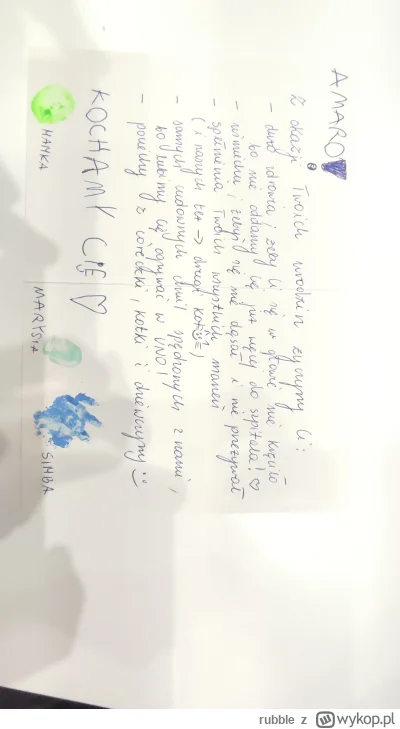 AMARO
Z okazji Twoich urodzin życzymy Ci:
- dużo zdrowia i żeby Ci się w głowie nie kręciło
bo nie oddamy Cię już więcej do szpitala! ♡
- uśmiechu i żebyś się nie dąsał i nie przeżywał
- spełnienia Twoich wszystkich marzeń
(i naszych też -> drugi kot)
- samych cudownych chwil spędzonych z nami,
bo lubimy Cię ogrywać w UNO!
- pociechy z córeczki, kotki i dziewczyny :)
KOCHAMY CIĘ ♡
HANKA
MARYSIA
SIMBA
rubble z wykop.pl